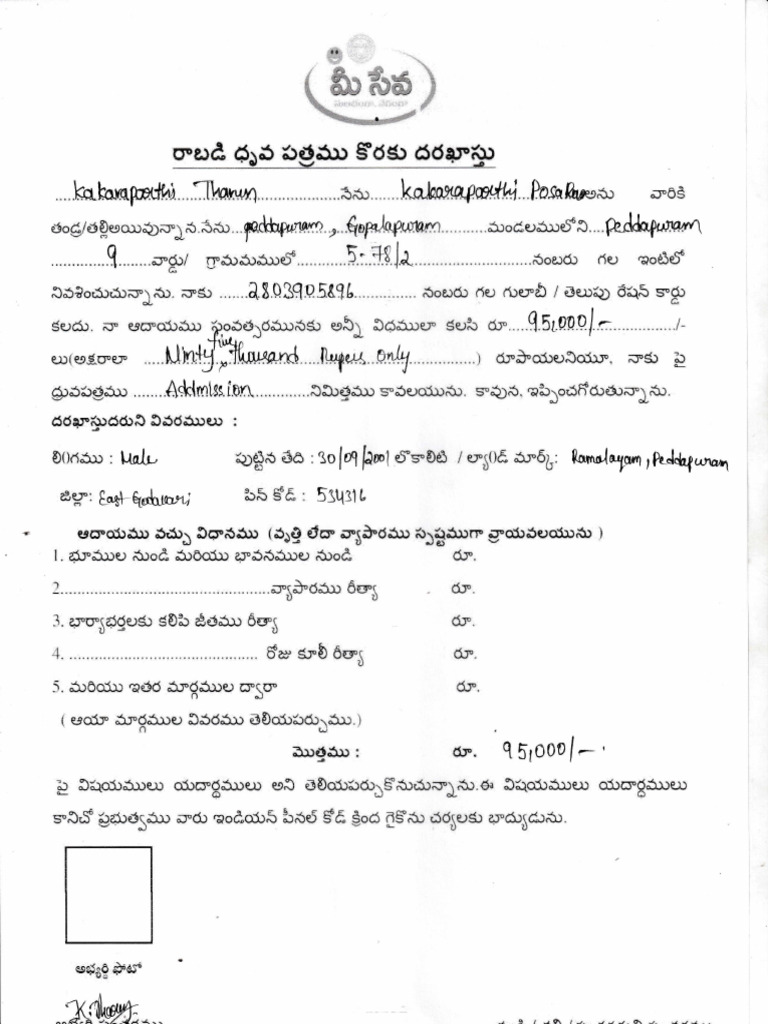 మీ సేవ
రాబడి ధృవ పత్రము కొరకు దరఖాస్తు
Kakaraparthi Tharun సేను Kakaraparthi Posarao అను వారికి
తండ్ర/తల్లిఅయివున్నాన.సేను peddapuram, Gopalapuram మండలములోని Peddapuram
9 వార్డు/ గ్రామమములో 5-78/2 నంబరు గల ఇంటిలో
నివశించుచున్నాను. నాకు 2803905896 నంబరు గల గులాబీ / తెలుపు రేషన్ కార్డు
కలదు. నా ఆదాయము సంవత్సరమునకు అన్నీ విధములా కలసి రూ. 95,000/- /-
లు(అక్షరాలా Ninty five Thousand Rupees Only ) రూపాయలనియూ, నాకు పై
ధ్రువపత్రము Addmission నిమిత్తము కావలయును. కావున, ఇప్పించగోరుతున్నాను.
దరఖాస్తుదరుని వివరములు :
లి0గము : Male పుట్టిన తేది : 30/09/2001 లొకాలిటి / ల్యా0డ్ మార్క్: Ramalayam, Peddapuram
జిల్లా: East Godavari పిన్ కోడ్ : 534316
ఆదాయము వచ్చు విధానము (వృత్తి లేదా వ్యాపారము స్పష్టముగా వ్రాయవలయును )
1. భూముల నుండి మరియు భావనముల నుండి రూ.
2. వ్యాపారము రీత్యా రూ.
3. భార్యాభర్తలకు కలిపి జీతము రీత్యా రూ.
4. రోజు కూలీ రీత్యా రూ.
5. మరియు ఇతర మార్గముల ద్వారా రూ.
( ఆయా మార్గముల వివరము తెలియపర్చుము.)
మొత్తము : రూ. 95,000/-
పై విషయములు యదార్ధములు అని తెలియపర్చుకొనుచున్నాను.ఈ విషయములు యదార్ధములు
కానిచో ప్రభుత్వము వారు ఇండియన్ పీనల్ కోడ్ క్రింద గైకొను చర్యలకు భాద్యుడును.
అభ్యర్ధి ఫోటో
K. Tharun